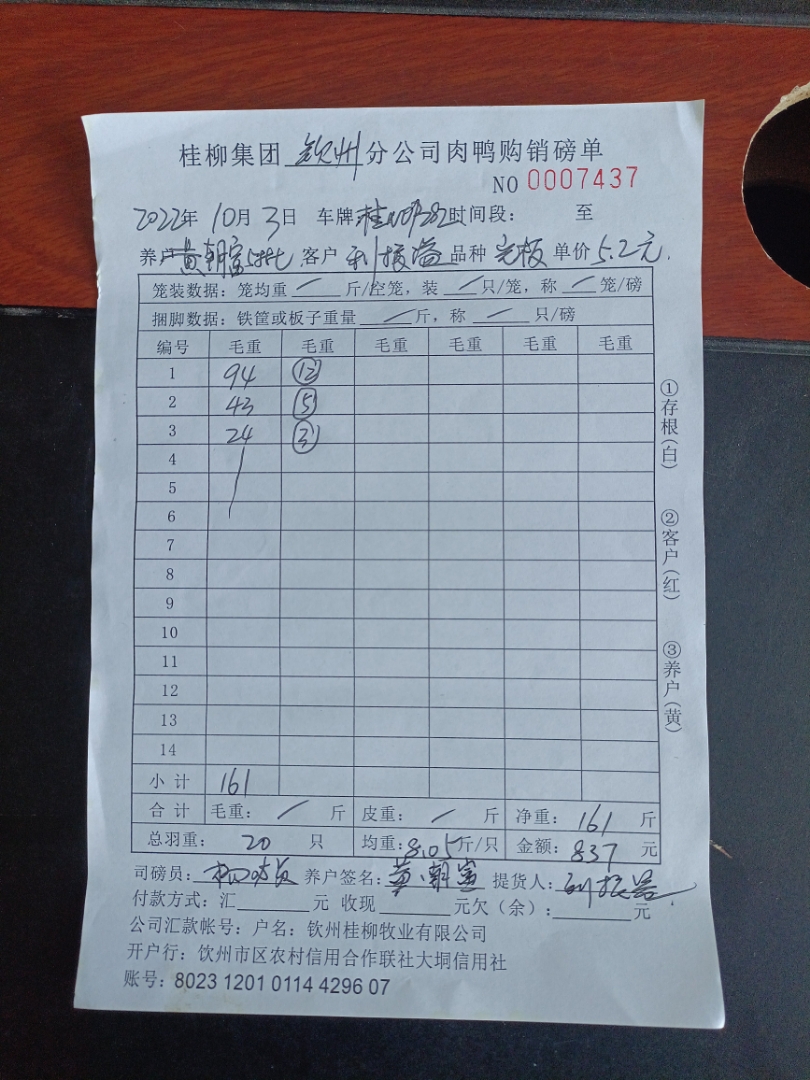 桂柳集团 钦州 分公司肉鸭购销磅单
NO 0007437
2022年 10月 3日 车牌 桂 时间段： 至
养户 黄朝富 客户 品种 单价 5.2元
笼装数据：笼均重 / 斤/空笼，装 / 只/笼，称 / 笼/磅
捆脚数据：铁筐或板子重量 / 斤，称 / 只/磅
编号 毛重 毛重 毛重 毛重 毛重 毛重
1 94 ⑫
2 43 ⑤
3 24 ③
4
5
6
7
8
9
10
11
12
13
14
小计 161
合计 毛重： / 斤 皮重： / 斤 净重： 161 斤
总羽重： 20 只 均重：8.05斤/只 金额： 837 元
司磅员： 养户签名：黄朝富 提货人：
付款方式：汇 元 收现 元欠（余）： 元
公司汇款帐号：户名：钦州桂柳牧业有限公司
开户行：钦州市区农村信用合作联社大垌信用社
账号：8023 1201 0114 4296 07
①存根（白）
②客户（红）
③养户（黄）